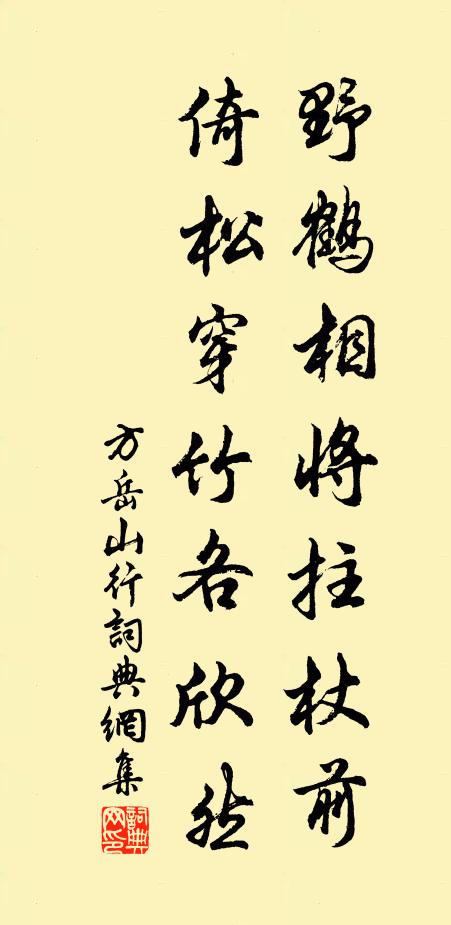 野鶴相將拄杖前
倚松穿竹各欣然
方岳山行詞典網集
詞典网印